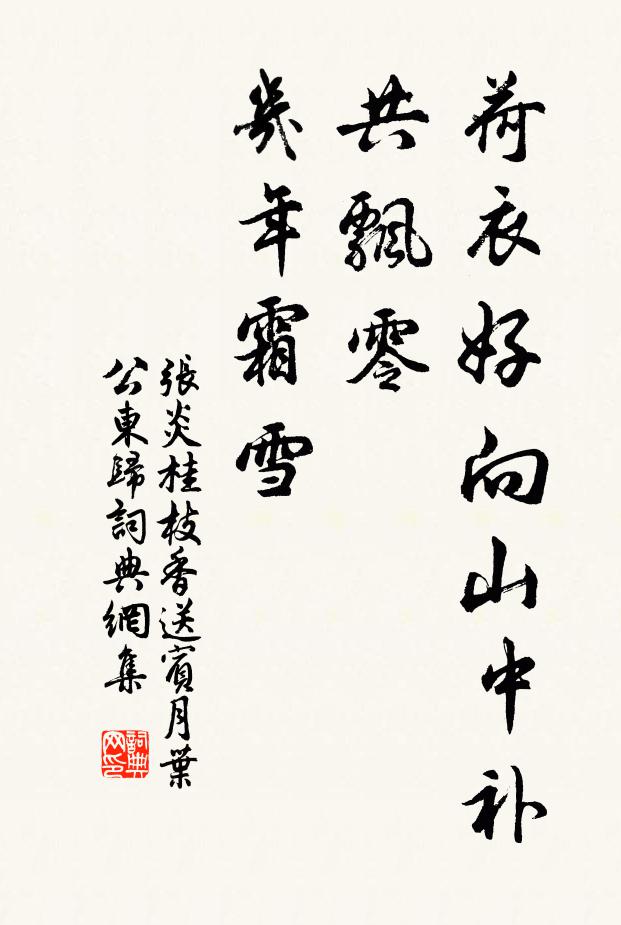 荷衣好向山中补
共飄零
幾年霜雪
張炎桂枝香送賓月葉
公東歸詞典網集
詞典
网印